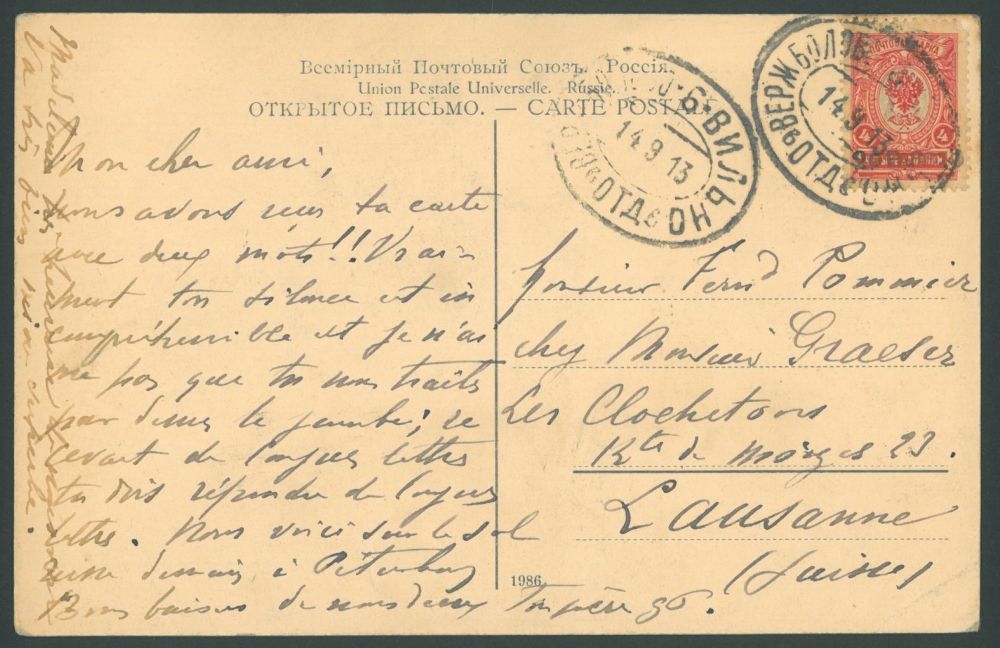 Всемірный Почтовый Союзъ. Россія.
Union Postale Universelle. Russie.
ОТКРЫТОЕ ПИСЬМО. — CARTE POSTALE
ПОЧТОВАЯ МАРКА
4 4
ВЕРЖБОЛОВ
14 9 13
ОТД
Б ВИЛЬНО
14 9 13
ОТД
Mon cher ami,
nous avons reçu ta carte
avec deux mots!! Vrai-
ment ton silence est in
compréhensible et je n'ai
me pas que tu nous traites
par dessus la jambe; re
cevant de longues lettres
tu dois répondre de longues
lettres. Nous voici sur le sol
russe demain à Pétersbourg
Bons baisers de nous deux
Ton père
Monsieur Fernd Pommier
chez Monsieur Graeser
Les Clochetons
Rte de Morges 23.
Lausanne
(Suisse)
1986
Madeleine
va très bien